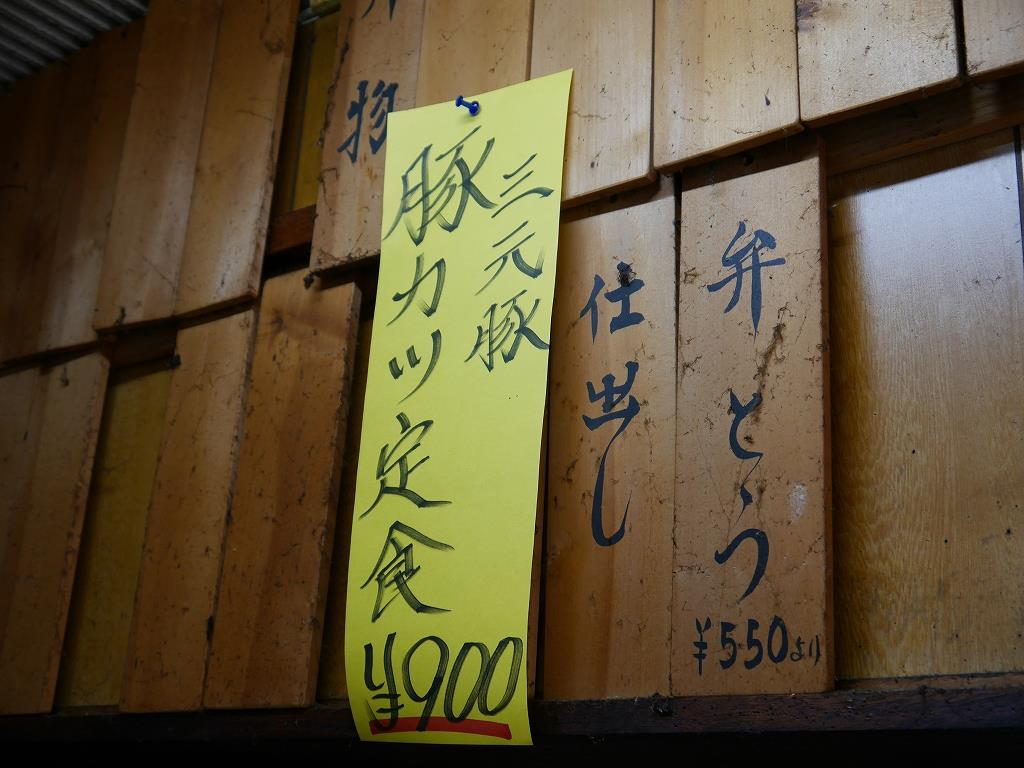 弁とう
¥550より
仕出し
三元豚
豚カツ定食
¥900
物